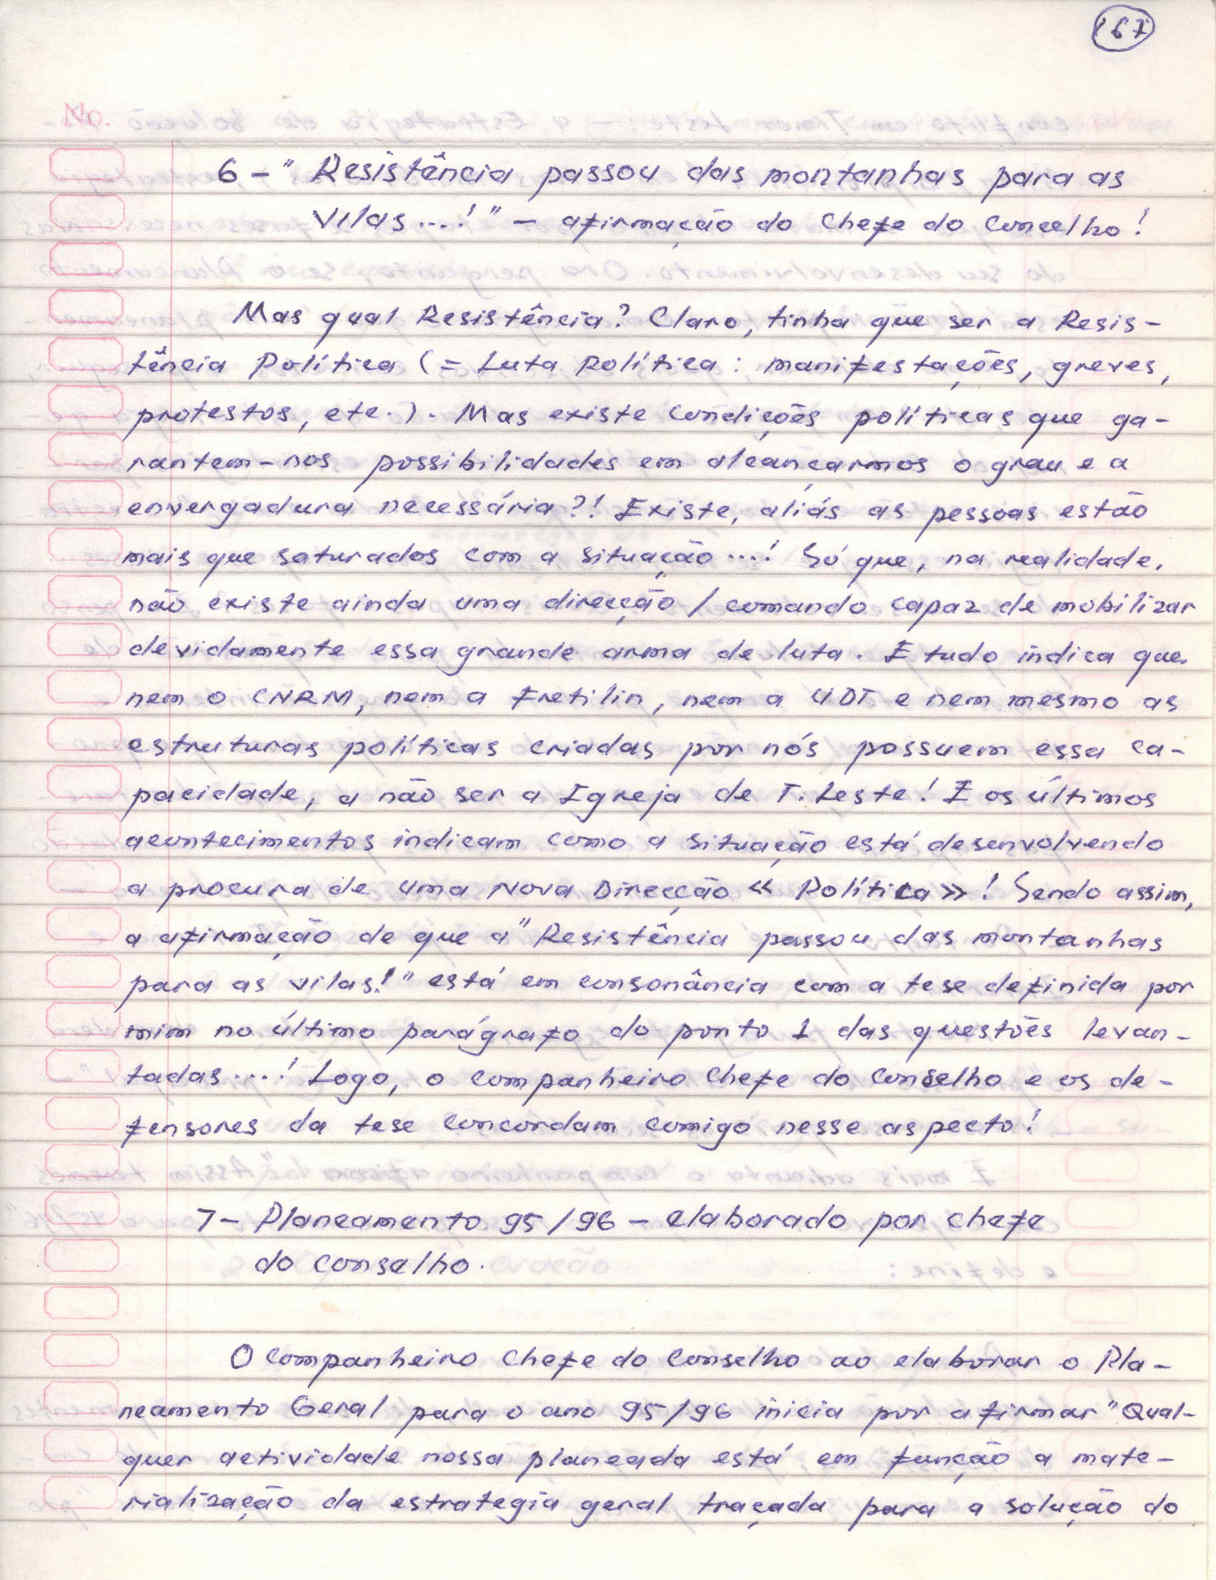 167
No.
6 - "Resistência passou das montanhas para as
vilas...!" - afirmação do Chefe do Concelho!
Mas qual Resistência? Claro, tinha que ser a Resis-
tência Política (= Luta Política: manifestações, greves,
protestos, etc.). Mas existe condições políticas que ga-
rantem-nos possibilidades em alcançarmos o grau e a
envergadura necessária?! Existe, aliás as pessoas estão
mais que saturados com a situação...! Só que, na realidade,
não existe ainda uma direcção/comando capaz de mobilizar
devidamente essa grande arma de luta. E tudo indica que
nem o CNRM, nem a Fretilin, nem a UDT e nem mesmo as
estruturas políticas criadas por nós possuem essa ca-
pacidade, a não ser a Igreja de T. Leste! E os últimos
acontecimentos indicam como a situação está desenvolvendo
a procura de uma Nova Direcção «Política»! Sendo assim,
a afirmação de que a "Resistência passou das montanhas
para as vilas!" está em consonância com a tese definida por
mim no último parágrafo do ponto 1 das questões levan-
tadas...! Logo, o companheiro Chefe do Conselho e os de-
fensores da tese concordam comigo nesse aspecto!
7 - Planeamento 95/96 - elaborado por chefe
do conselho.
O companheiro Chefe do Conselho ao elaborar o Pla-
neamento Geral para o ano 95/96 inicia por afirmar "Qual-
quer actividade nossa planeada está, em função a mate-
rialização da estrategia geral traçada para a solução do